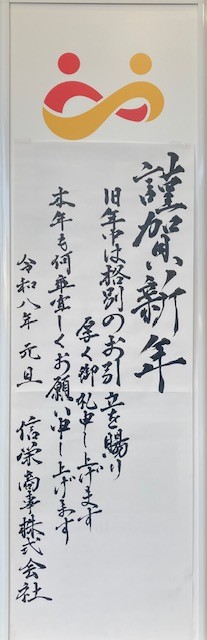 謹賀新年
旧年中は格別のお引立を賜り
厚く御礼申し上げます
本年も何卒宜しくお願い申し上げます
令和八年 元旦
信栄商事株式会社